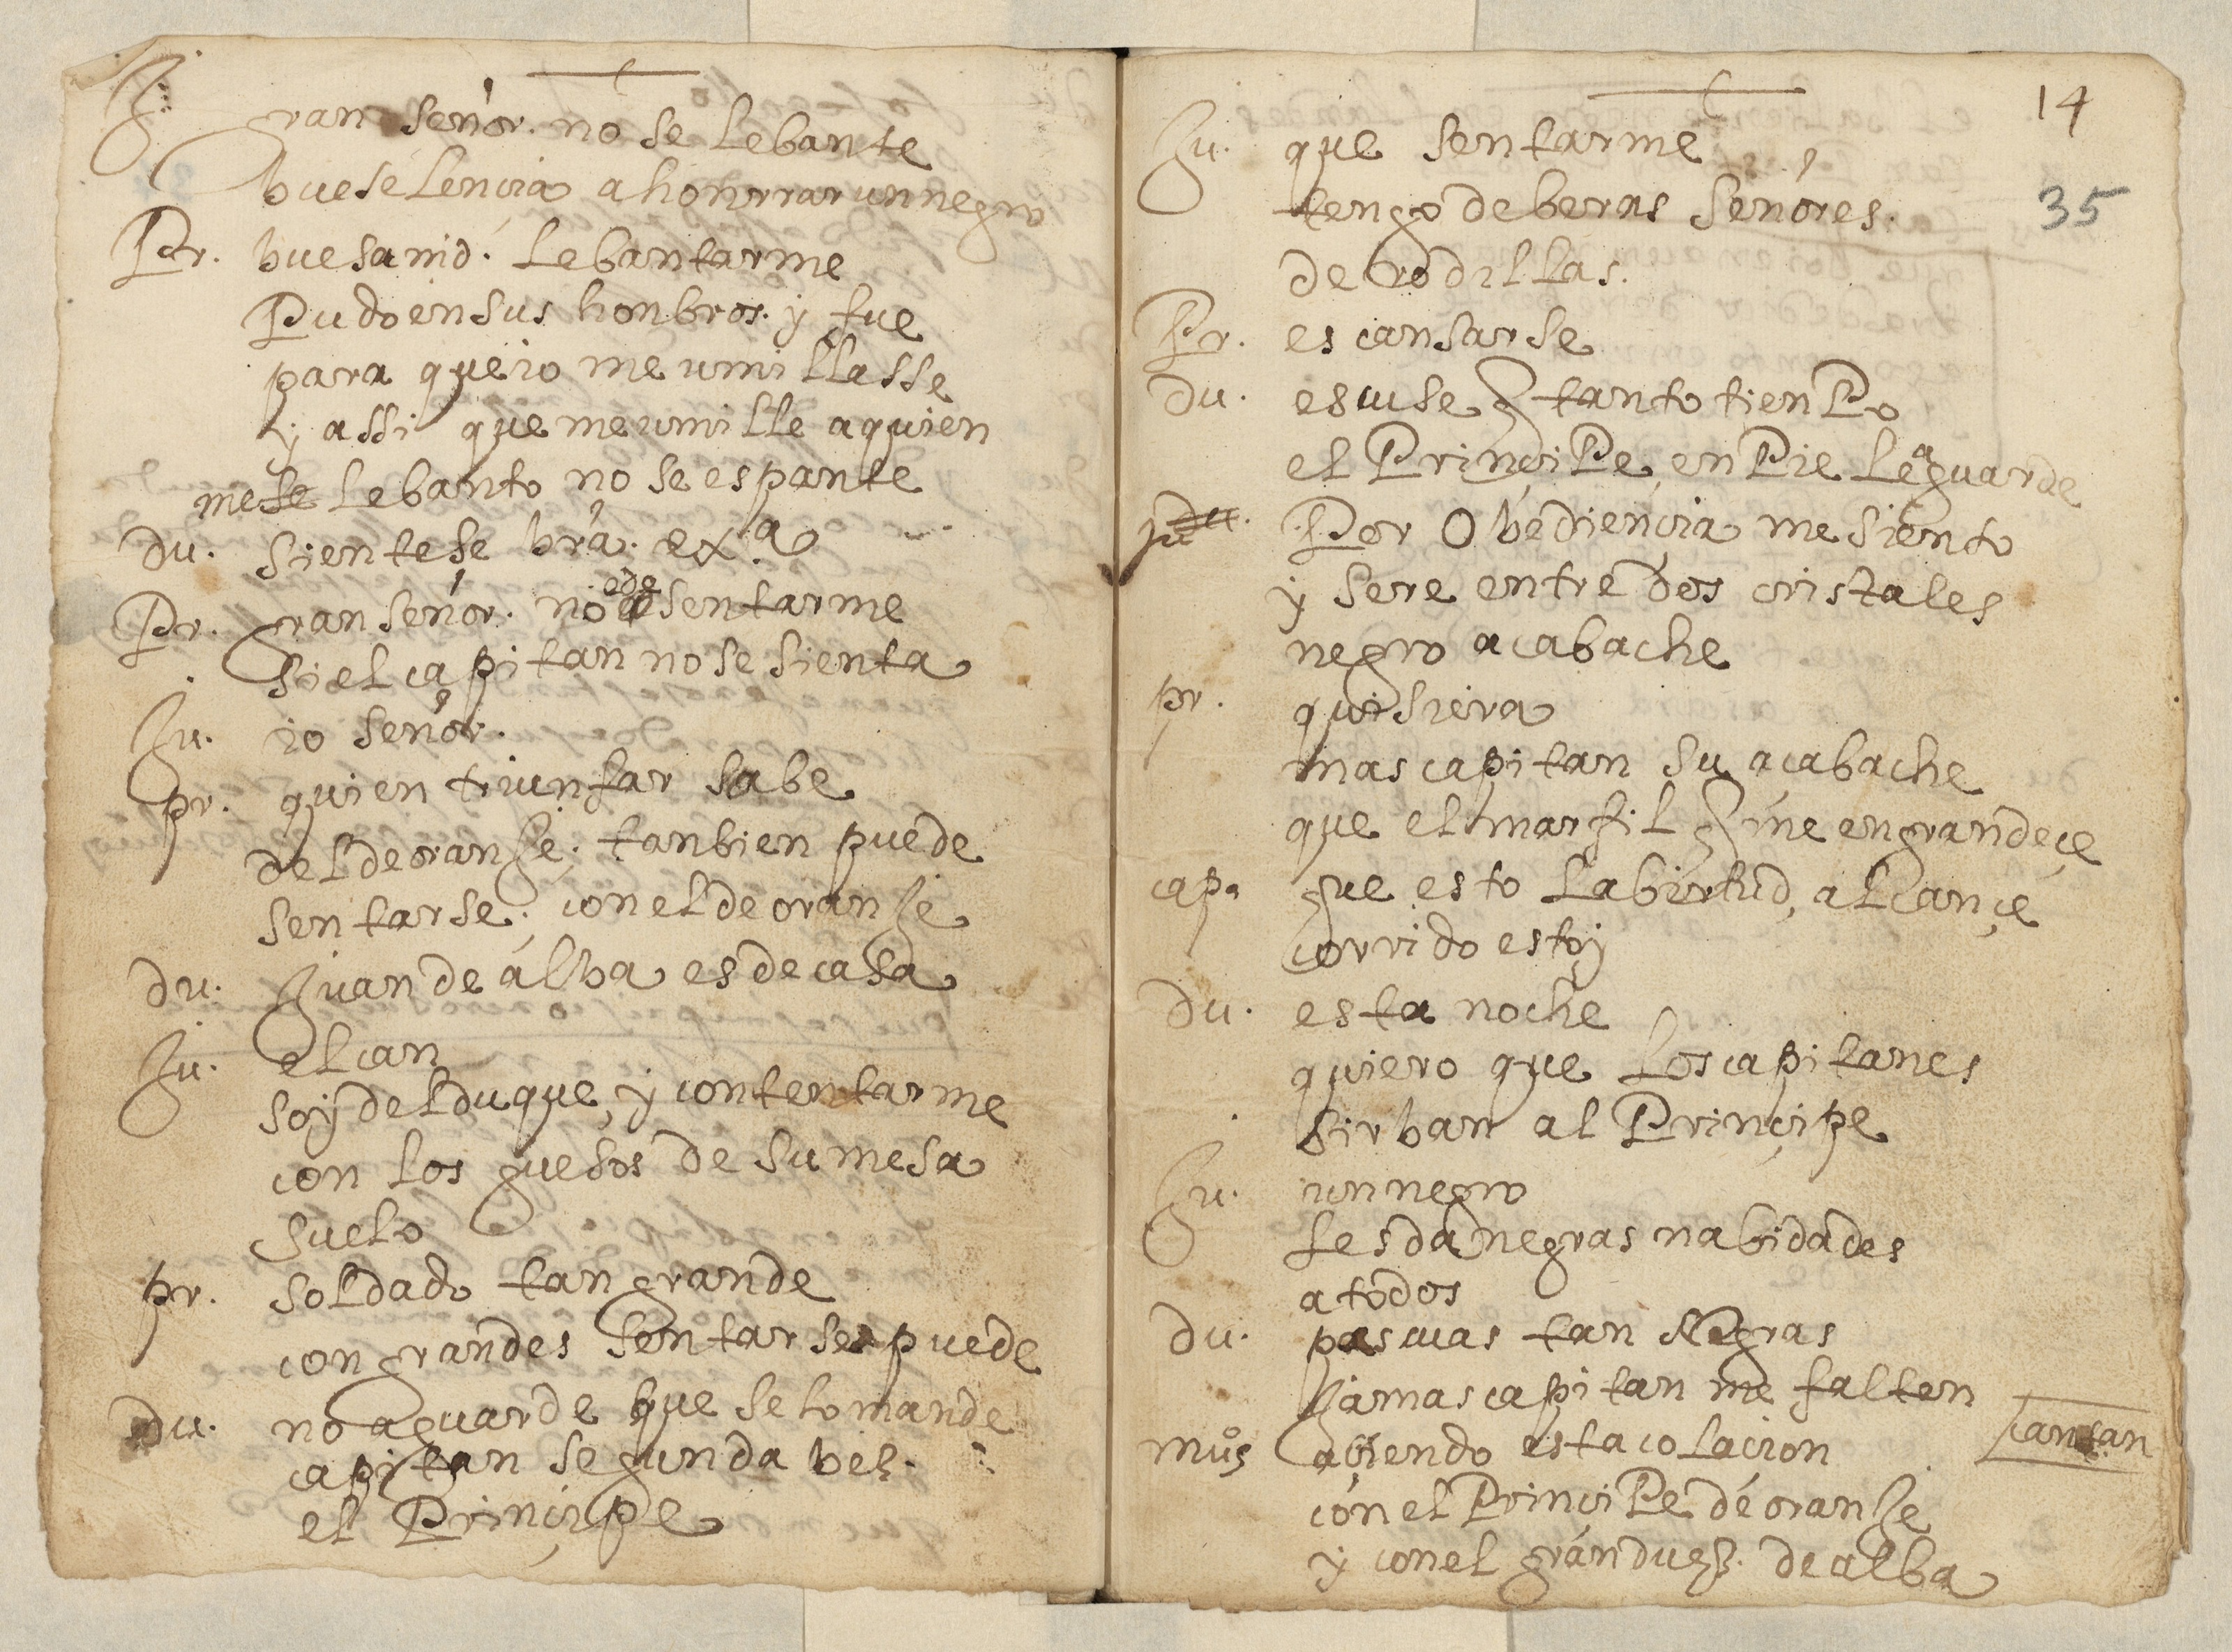 Ju. gran señor. no se lebante
bueselencia a honrrar un negro
Pr. buesamd. lebantarme
Pudo en sus honbros. y fue
para que io me umillasse
y assi que me umille a quien
me lebanto no se espante
du. sientese bra. exa
Pr. gran señor. no e de sentarme
si el capitan no se sienta
Ju. io señor.
pr. quien triunfar sabe
del de oranje. tanbien puede
sentarse. con el de oranje
du. Juan de alba es de casa
Ju. el can
soy del duque, y contentarme
con los guesos de su mesa
suelo
pr. soldado tan grande
con grandes sentarse puede
du. no aguarde que se lo mande
capitan segunda bez.
el Principe
14
Ju. que sentarme
tengo de beras señores.
35
de rodillas.
Pr. es cansarse
du. escuse q tanto tienPo
el PrinciPe, en Pie le aguarde
ju Por Obediencia me siento
y sere entre dos cristales
negro acabache
pr. quisiera
mas capitan su acabache
que el marfil q me engrandeçe
cap. que esto la birtud, alcançe
corrido estoy
du. esta noche
quiero que los capitanes
sirban al Principe
Ju. un negro
les da negras nabidades
a todos
du. pascuas tan Negras
Jamas capitan me falten
cantan
mus abiendo esta colacion
con el PrinciPe de oranje
y con el gran duq. de alba